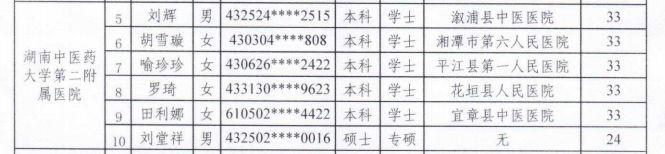 湖南中医药大学第二附属医院
5 刘辉 男 432524****2515 本科 学士 溆浦县中医医院 33
6 胡雪璇 女 430304****808 本科 学士 湘潭市第六人民医院 33
7 喻珍珍 女 430626****2422 本科 学士 平江县第一人民医院 33
8 罗琦 女 433130****9623 本科 学士 花垣县人民医院 33
9 田利娜 女 610502****4422 本科 学士 宜章县中医医院 33
10 刘堂祥 男 432502****0016 硕士 专硕 无 24